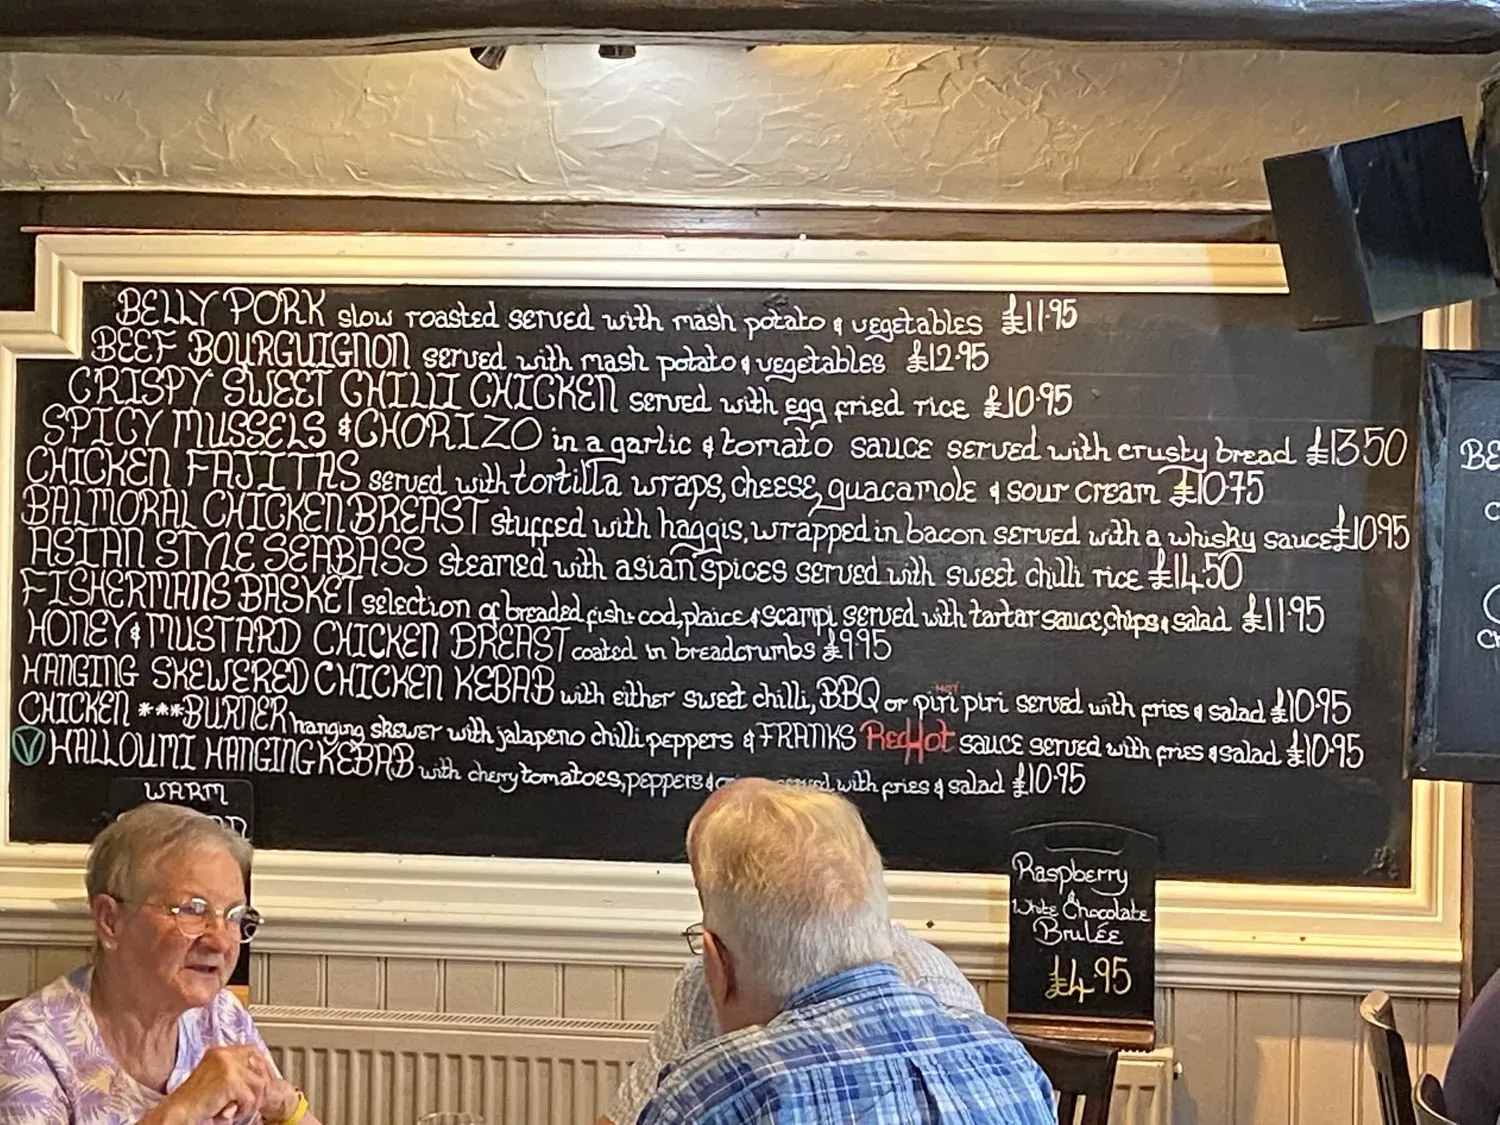 BELLY PORK slow roasted served with mash potato & vegetables £11.95
BEEF BOURGUIGNON served with mash potato & vegetables £12.95
CRISPY SWEET CHILLI CHICKEN served with egg fried rice £10.95
SPICY MUSSELS & CHORIZO in a garlic & tomato sauce served with crusty bread £13.50
CHICKEN FAJITAS served with tortilla wraps, cheese, guacamole & sour cream £10.75
BALMORAL CHICKEN BREAST stuffed with haggis, wrapped in bacon served with a whisky sauce £10.95
ASIAN STYLE SEABASS steamed with asian spices served with sweet chilli rice £14.50
FISHERMANS BASKET selection of breaded fish: cod, plaice & scampi served with tartar sauce, chips & salad £11.95
HONEY & MUSTARD CHICKEN BREAST coated in breadcrumbs £9.95
HANGING SKEWERED CHICKEN KEBAB with either sweet chilli, BBQ or HOT piri piri served with fries & salad £10.95
CHICKEN ***BURNER hanging skewer with jalapeno chilli peppers & FRANKS RedHot sauce served with fries & salad £10.95
V HALLOUMI HANGING KEBAB with cherry tomatoes, peppers & served with fries & salad £10.95
WARM
Raspberry
&
White Chocolate
Brulée
£4.95
BE